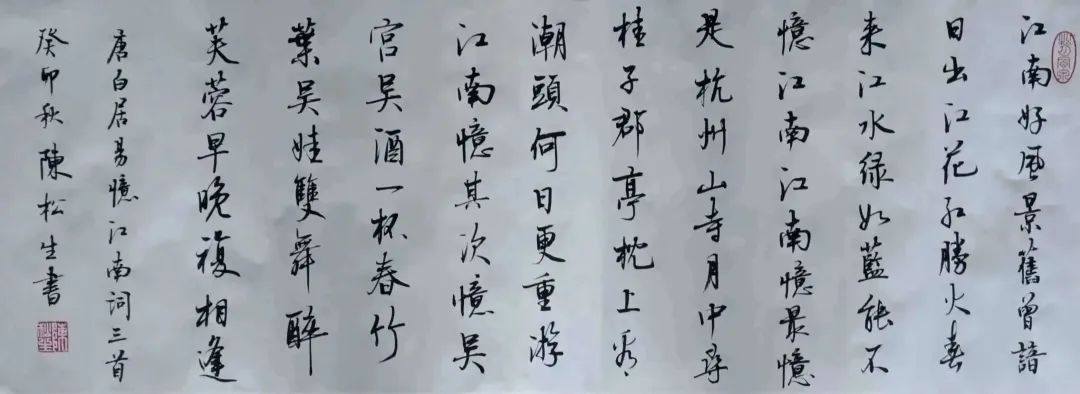 江南好風景舊曾諳
日出江花紅勝火春
来江水绿如藍能不
憶江南江南憶最憶
是杭州山寺月中尋
桂子郡亭枕上看
潮頭何日更重游
江南憶其次憶吴
宫吴酒一杯春竹
葉吴娃雙舞醉
芙蓉早晚複相逢
唐白居易憶江南词三首
癸卯秋陳松生書